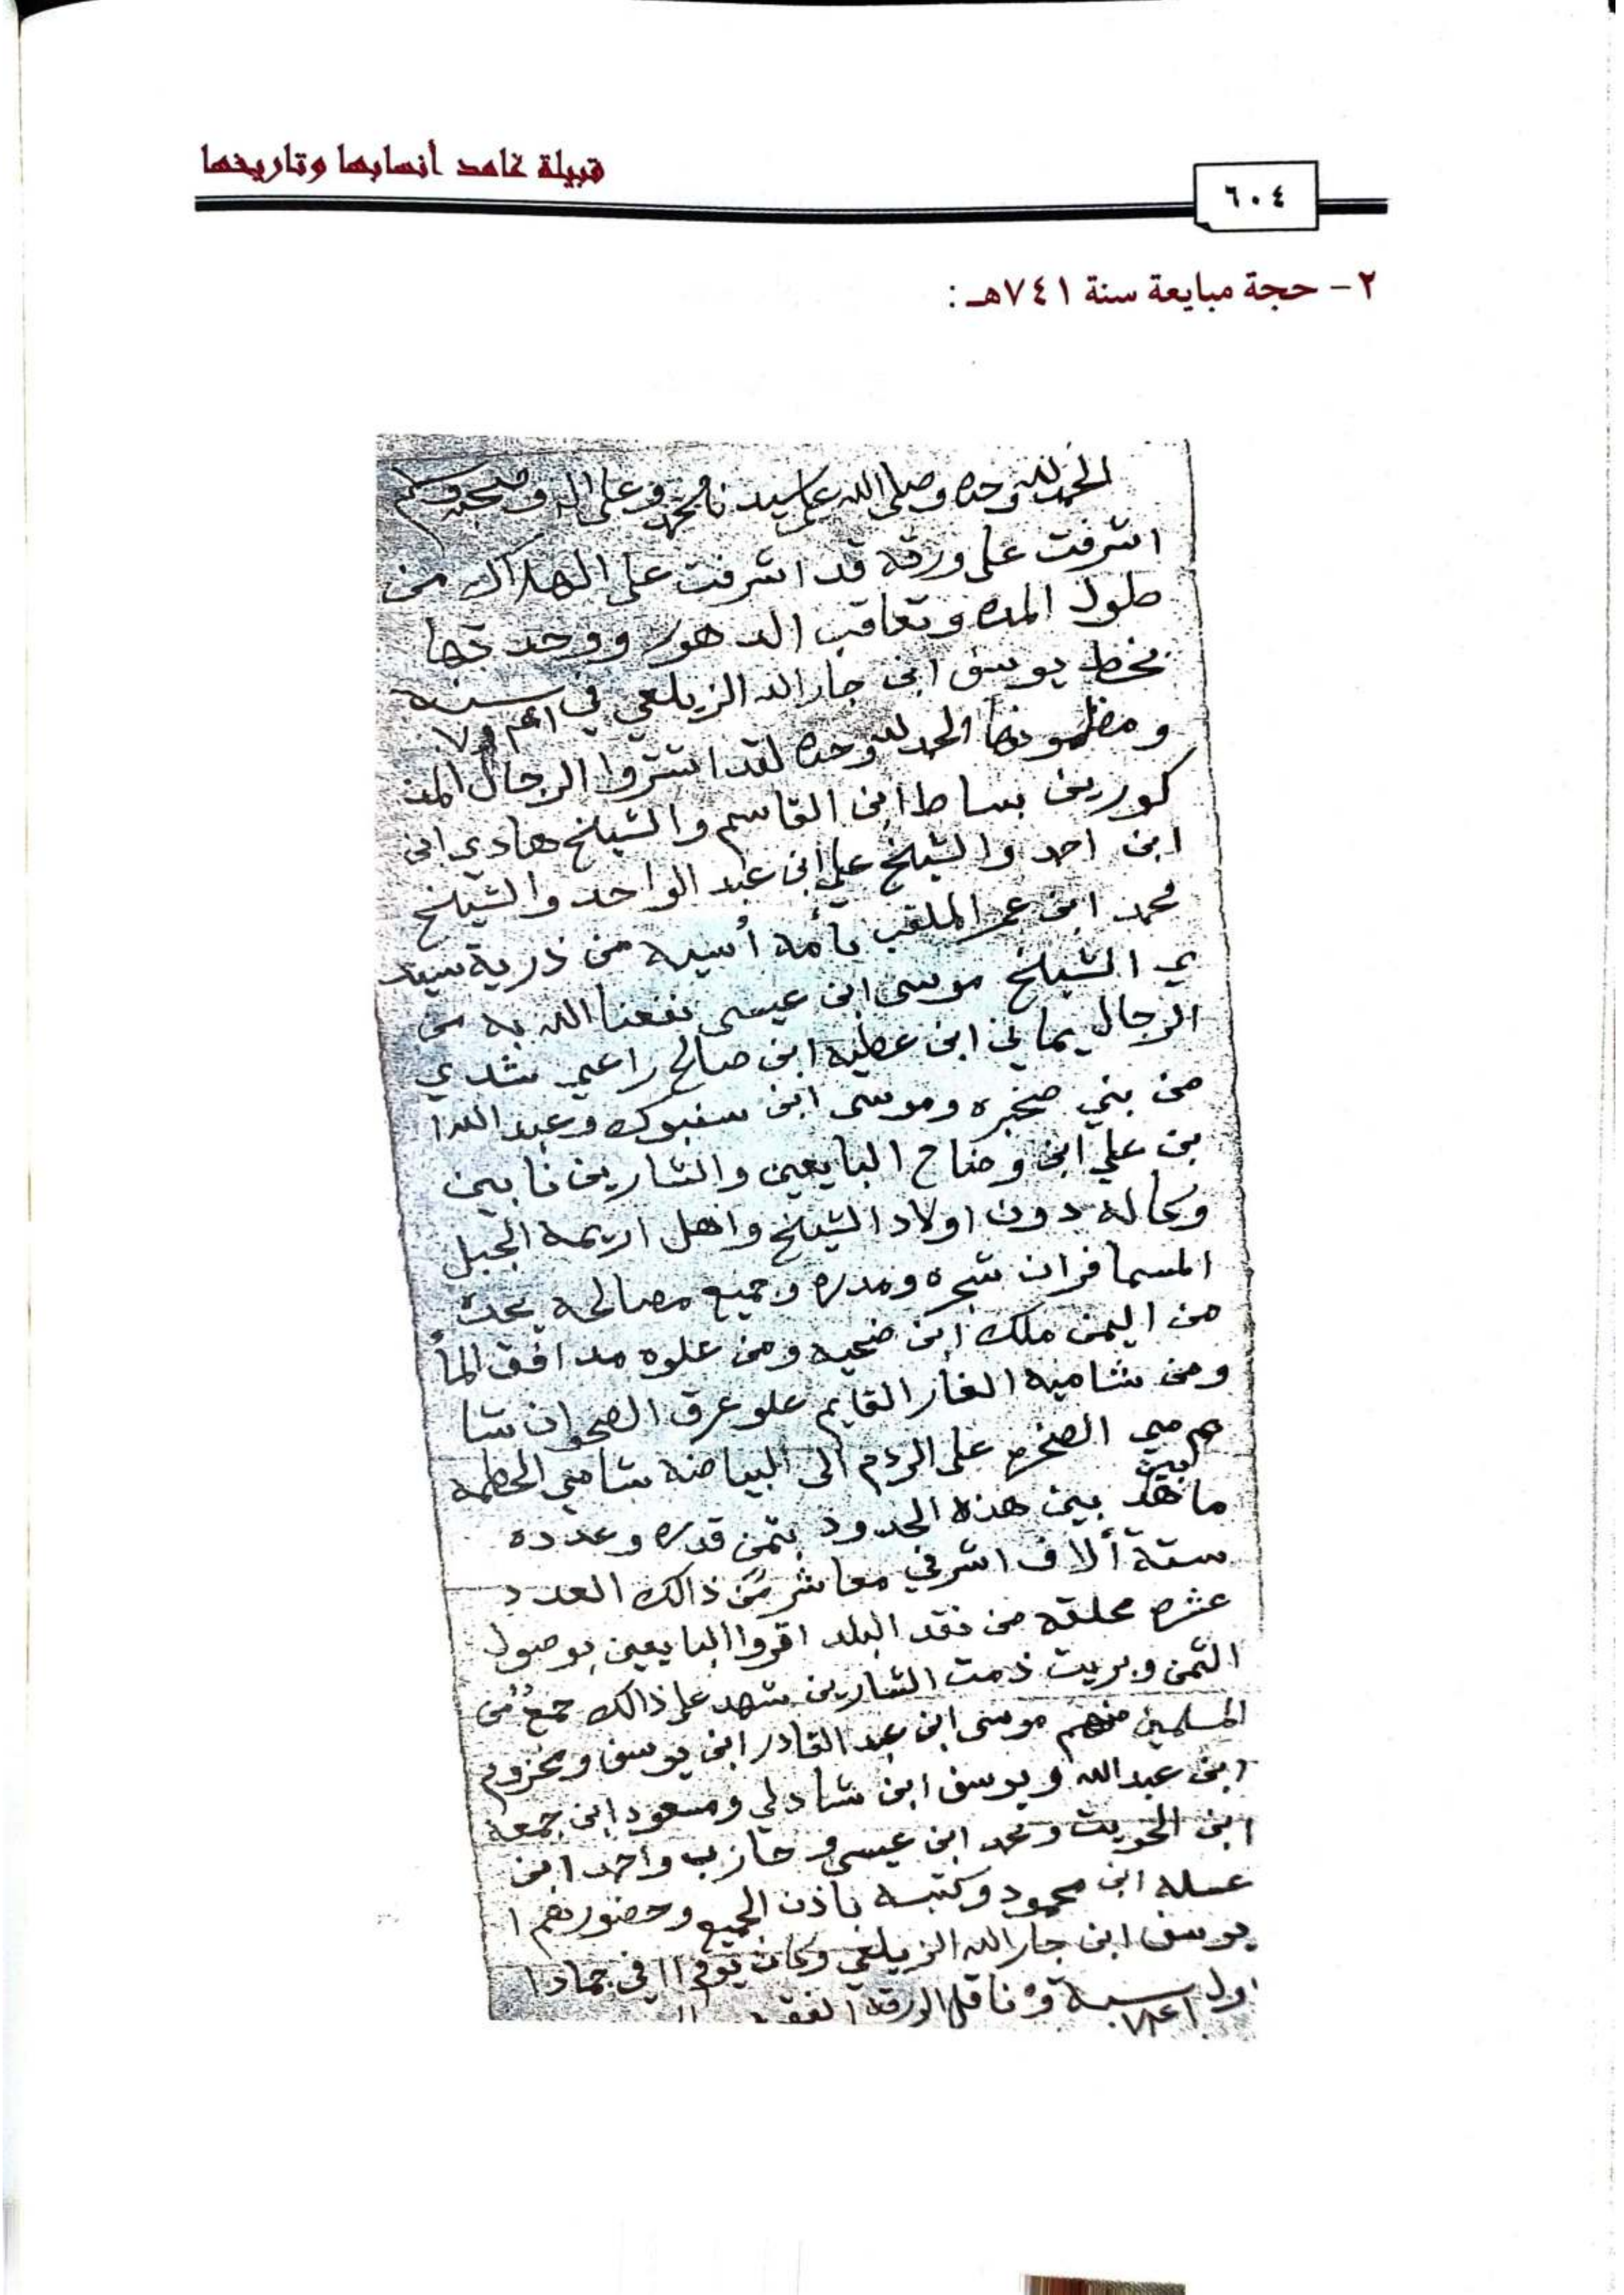 قبيلة غامد أنسابها وتاريخها
٦٠٤
٢- حجة مبايعة سنة ٧٤١هـ :
الحمد لله وحده وصلى الله على سيدنا محمد وعلى اله وصحبه وسلم
اشرفت على ورقة قد اشرفت على الهلاك من
طول المده وتعاقب الدهور ووجدتها
بخط يوسف ابن جار الله الزيلعي في سنه
ومظمونها الحمد لله وحده لقد اشتروا الرجال المذ
كورين بساط ابن القاسم والشيخ هادي ابن
ابن احمد والشيخ علي ابن عبد الواحد والشيخ
محمد ابن عمر الملقب بأمه أسيه من ذرية سيد
ي الشيخ موسى ابن عيسى نفعنا الله به من
الرجال يماني ابن عطيه ابن صالح راعي شدي
من بني صخره وموسى ابن سنبوك وعبد الله ا
بن علي ابن وضاح البايعين والشارين نايبين
وكاله دون اولاد الشيخ واهل اريمة الجبل
المسما فران شجره ومدره وجميع مصالحه يحده
من اليمن ملك ابن ضحيه ومن علوه مدافق الماأ
ومن شاميه الغار القايم علو عرق الصحوان شا
مي الصخره على الردم الى البياضه شامي الحطمة
ما بين هذه الحدود بثمن قدره وعدده
ستة ألاف اشرفي معاشر من ذالك العدد
عشره محلقه من نقد البلد اقروا البايعين بوصول
الثمن وبريت ذمت الشارين شهد على ذالك جمع من
المسلمين منهم موسى ابن عبد القادر ابن يوسف ومخزوم
ابن عبدالله ويوسف ابن شادلي ومسعود ابن جمعه
ابن الحريت ومحمد ابن عيسى و حازب واحمد ابن
عسله ابن محمود وكتبه باذن الجميع وحضورهم ا
يوسف ابن جار الله الزيلعي وكان في جمادا
اول سنة وناقل الورقه